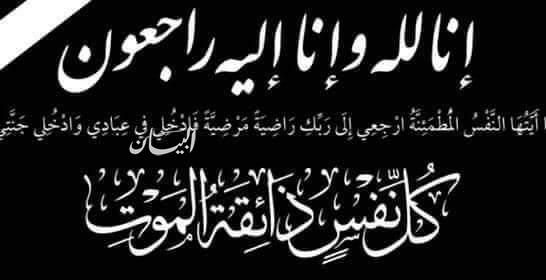 إنا لله وإنا إليه راجعون
ا أَيَّتُهَا النَّفْسُ الْمُطْمَئِنَّةُ ارْجِعِي إِلَى رَبِّكِ رَاضِيَةً مَرْضِيَّةً فَادْخُلِي فِي عِبَادِي وَادْخُلِي جَنَّتِي
البيان
كُلُّ نَفْسٍ ذَائِقَةُ الْمَوْتِ